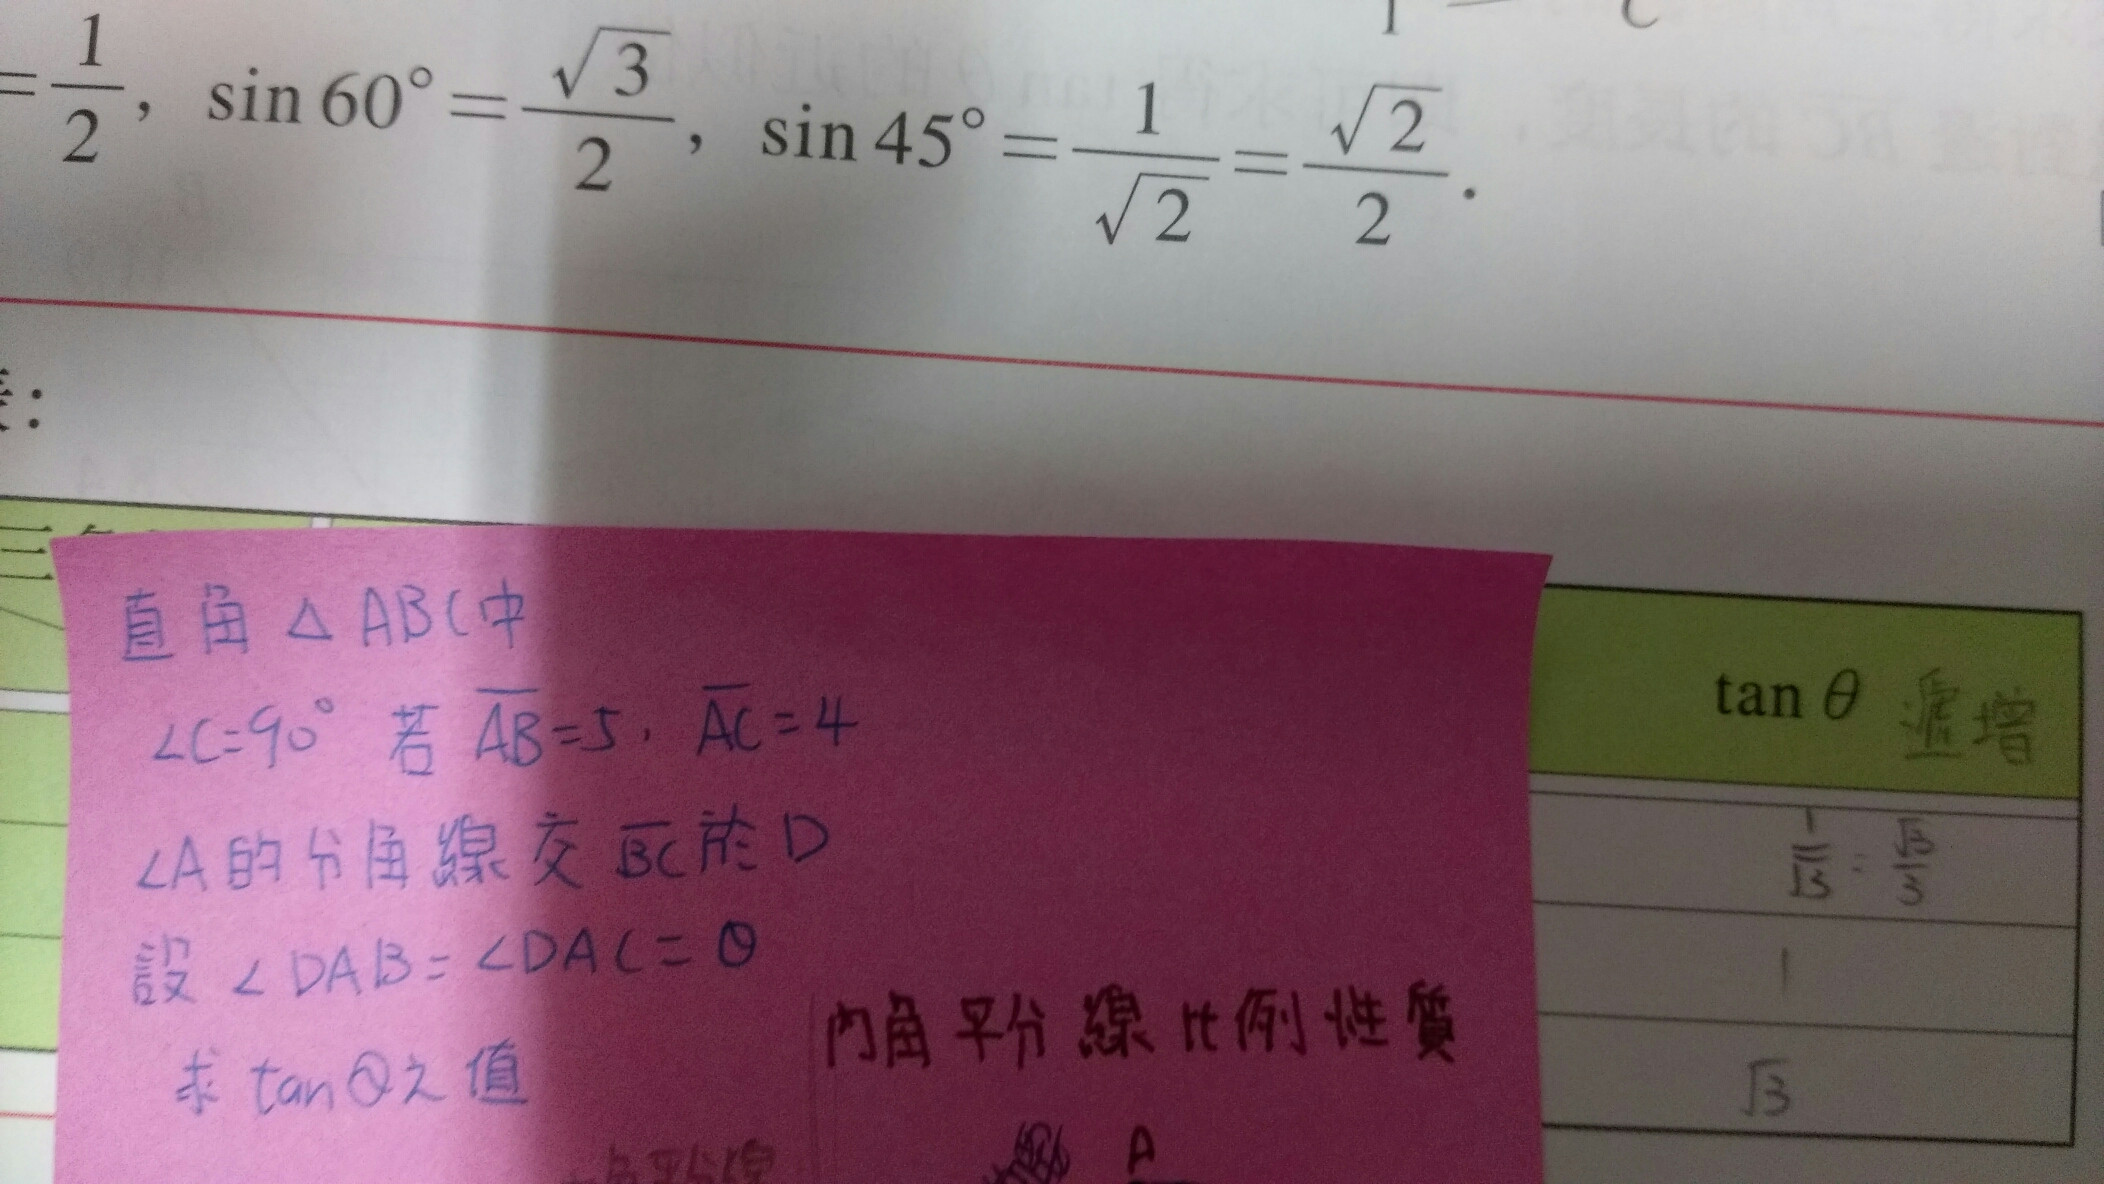 = 1/2, sin 60° = √3/2, sin 45° = 1/√2 = √2/2.
直角 △ ABC中
∠C=90° 若 A̅B̅=5, A̅C̅=4
∠A的分角線交 B̅C̅於D
設 ∠DAB=∠DAC=θ
求 tanθ之值
內角平分線比例性質
A
tan θ 遞增
1/√3 = √3/3
1
√3